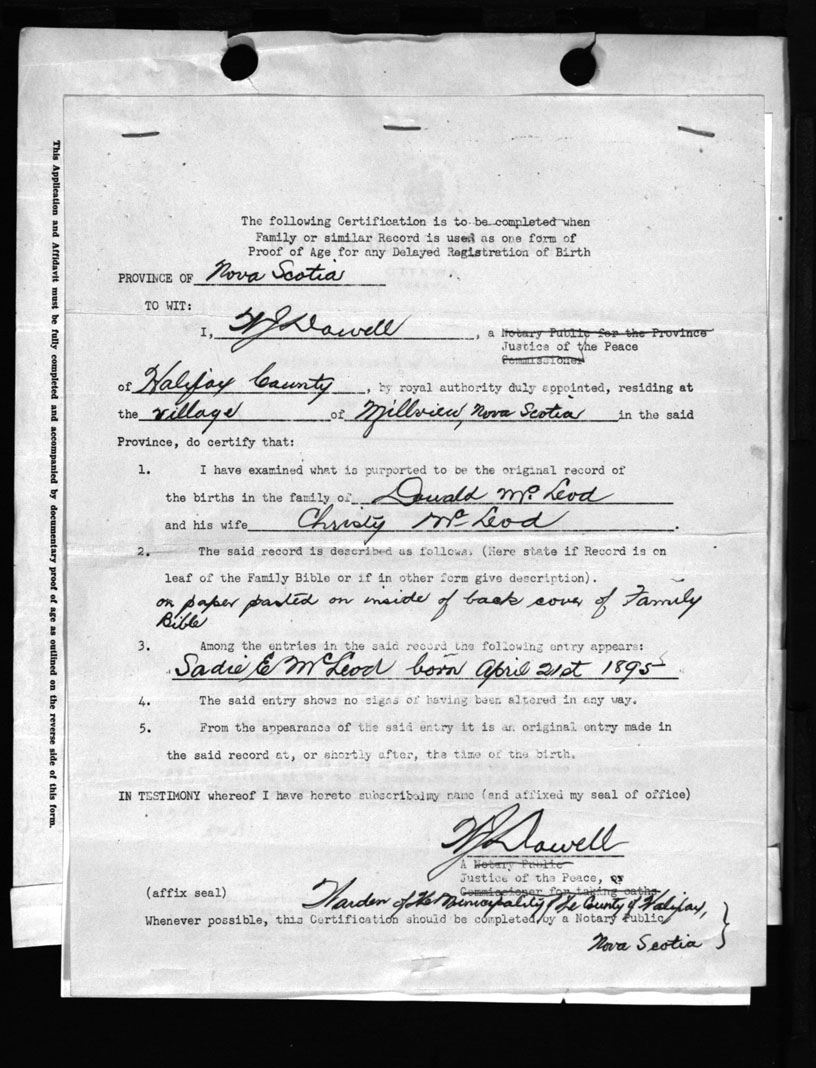 This Application and Affidavit must be fully completed and accompanied by documentary proof of age as outlined on the reverse side of this form.
The following Certification is to be completed when
Family or similar Record is used as one form of
Proof of Age for any Delayed Registration of Birth
PROVINCE OF Nova Scotia
TO WIT:
I, WJ Dowell, a Notary Public for the Province
Justice of the Peace
Commissioner
of Halifax County, by royal authority duly appointed, residing at
the village of Millview, Nova Scotia in the said
Province, do certify that:
1. I have examined what is purported to be the original record of
the births in the family of Donald Mc Leod
and his wife Christy Mc Leod.
2. The said record is described as follows. (Here state if Record is on
leaf of the Family Bible or if in other form give description).
on paper pasted on inside of back cover of Family
Bible
3. Among the entries in the said record the following entry appears:
Sadie E McLeod born April 21st 1895
4. The said entry shows no signs of having been altered in any way.
5. From the appearance of the said entry it is an original entry made in
the said record at, or shortly after, the time of the birth.
IN TESTIMONY whereof I have hereto subscribed my name (and affixed my seal of office)
WJ Dowell
A Notary Public
Justice of the Peace, or
(affix seal) Commissioner for taking oaths
Warden of the Municipality of the County of Halifax,
Whenever possible, this Certification should be completed by a Notary Public
Nova Scotia